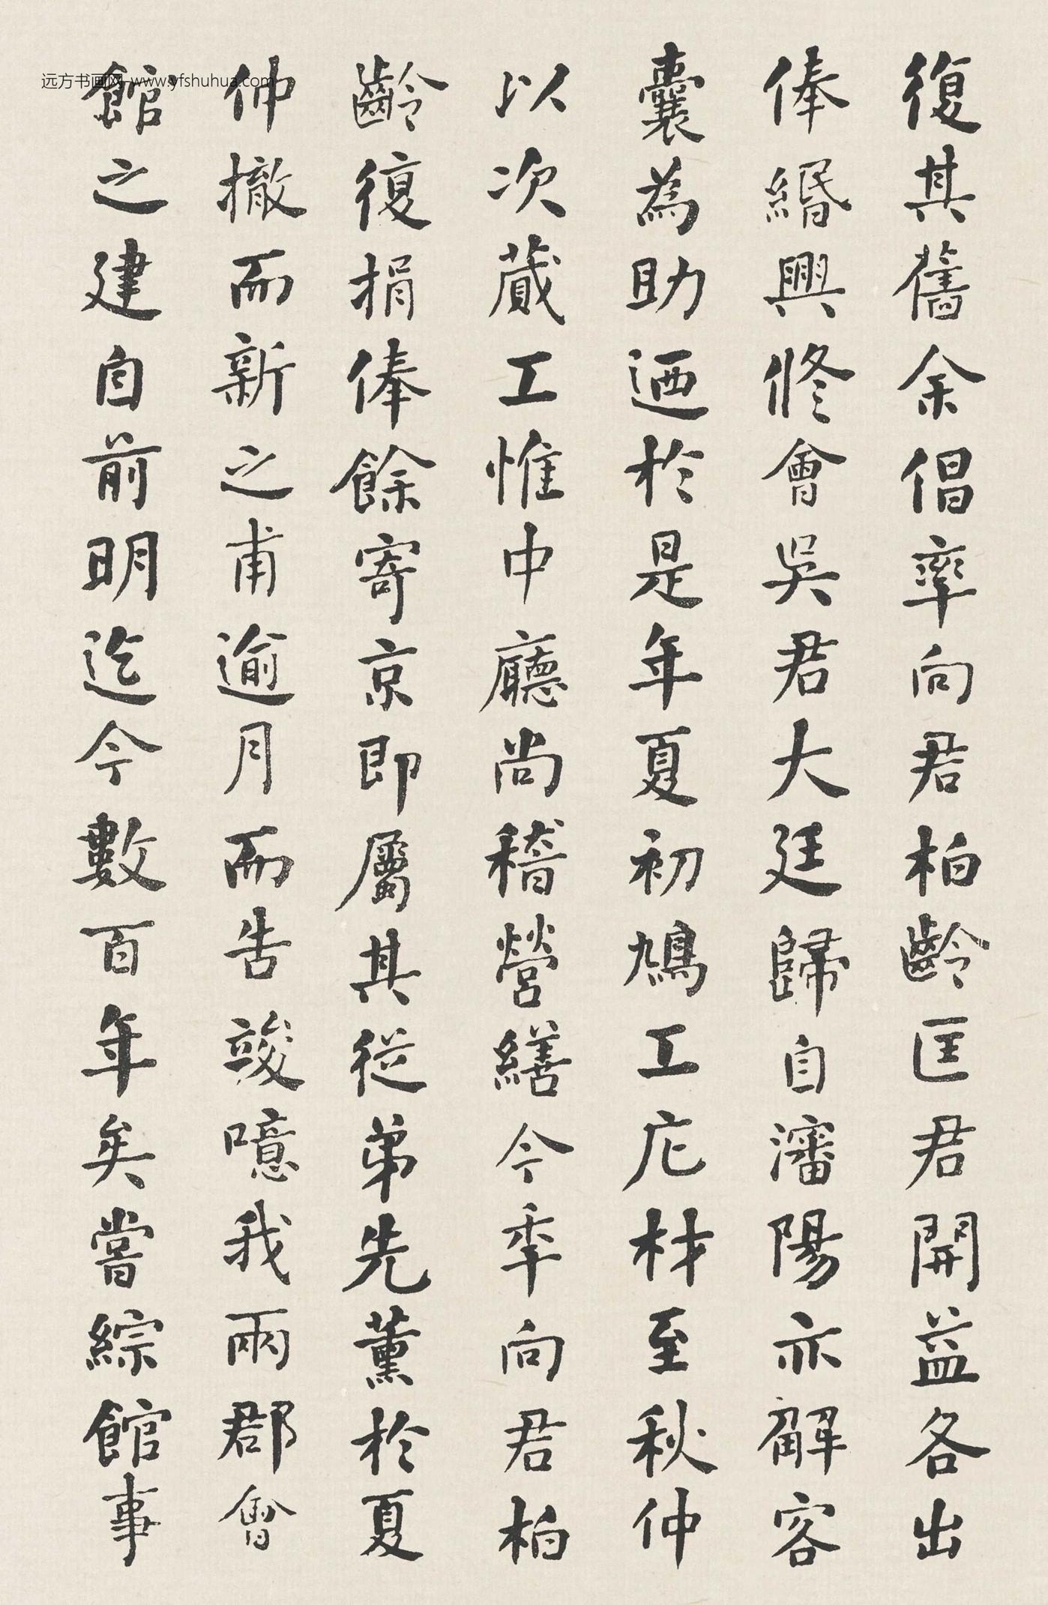 復其舊余倡率向君柏齡匡君開益各出
俸緡興修會吳君大廷歸自瀋陽亦解客
囊為助迺於是年夏初鳩工庀材至秋仲
以次蕆工惟中廳尚稽營繕今季向君柏
齡復捐俸餘寄京即屬其從弟先薰於夏
仲撤而新之甫逾月而告竣噫我兩郡會
館之建自前明迄今數百年矣嘗綜館事
远方书画网 www.yfshuhua.com